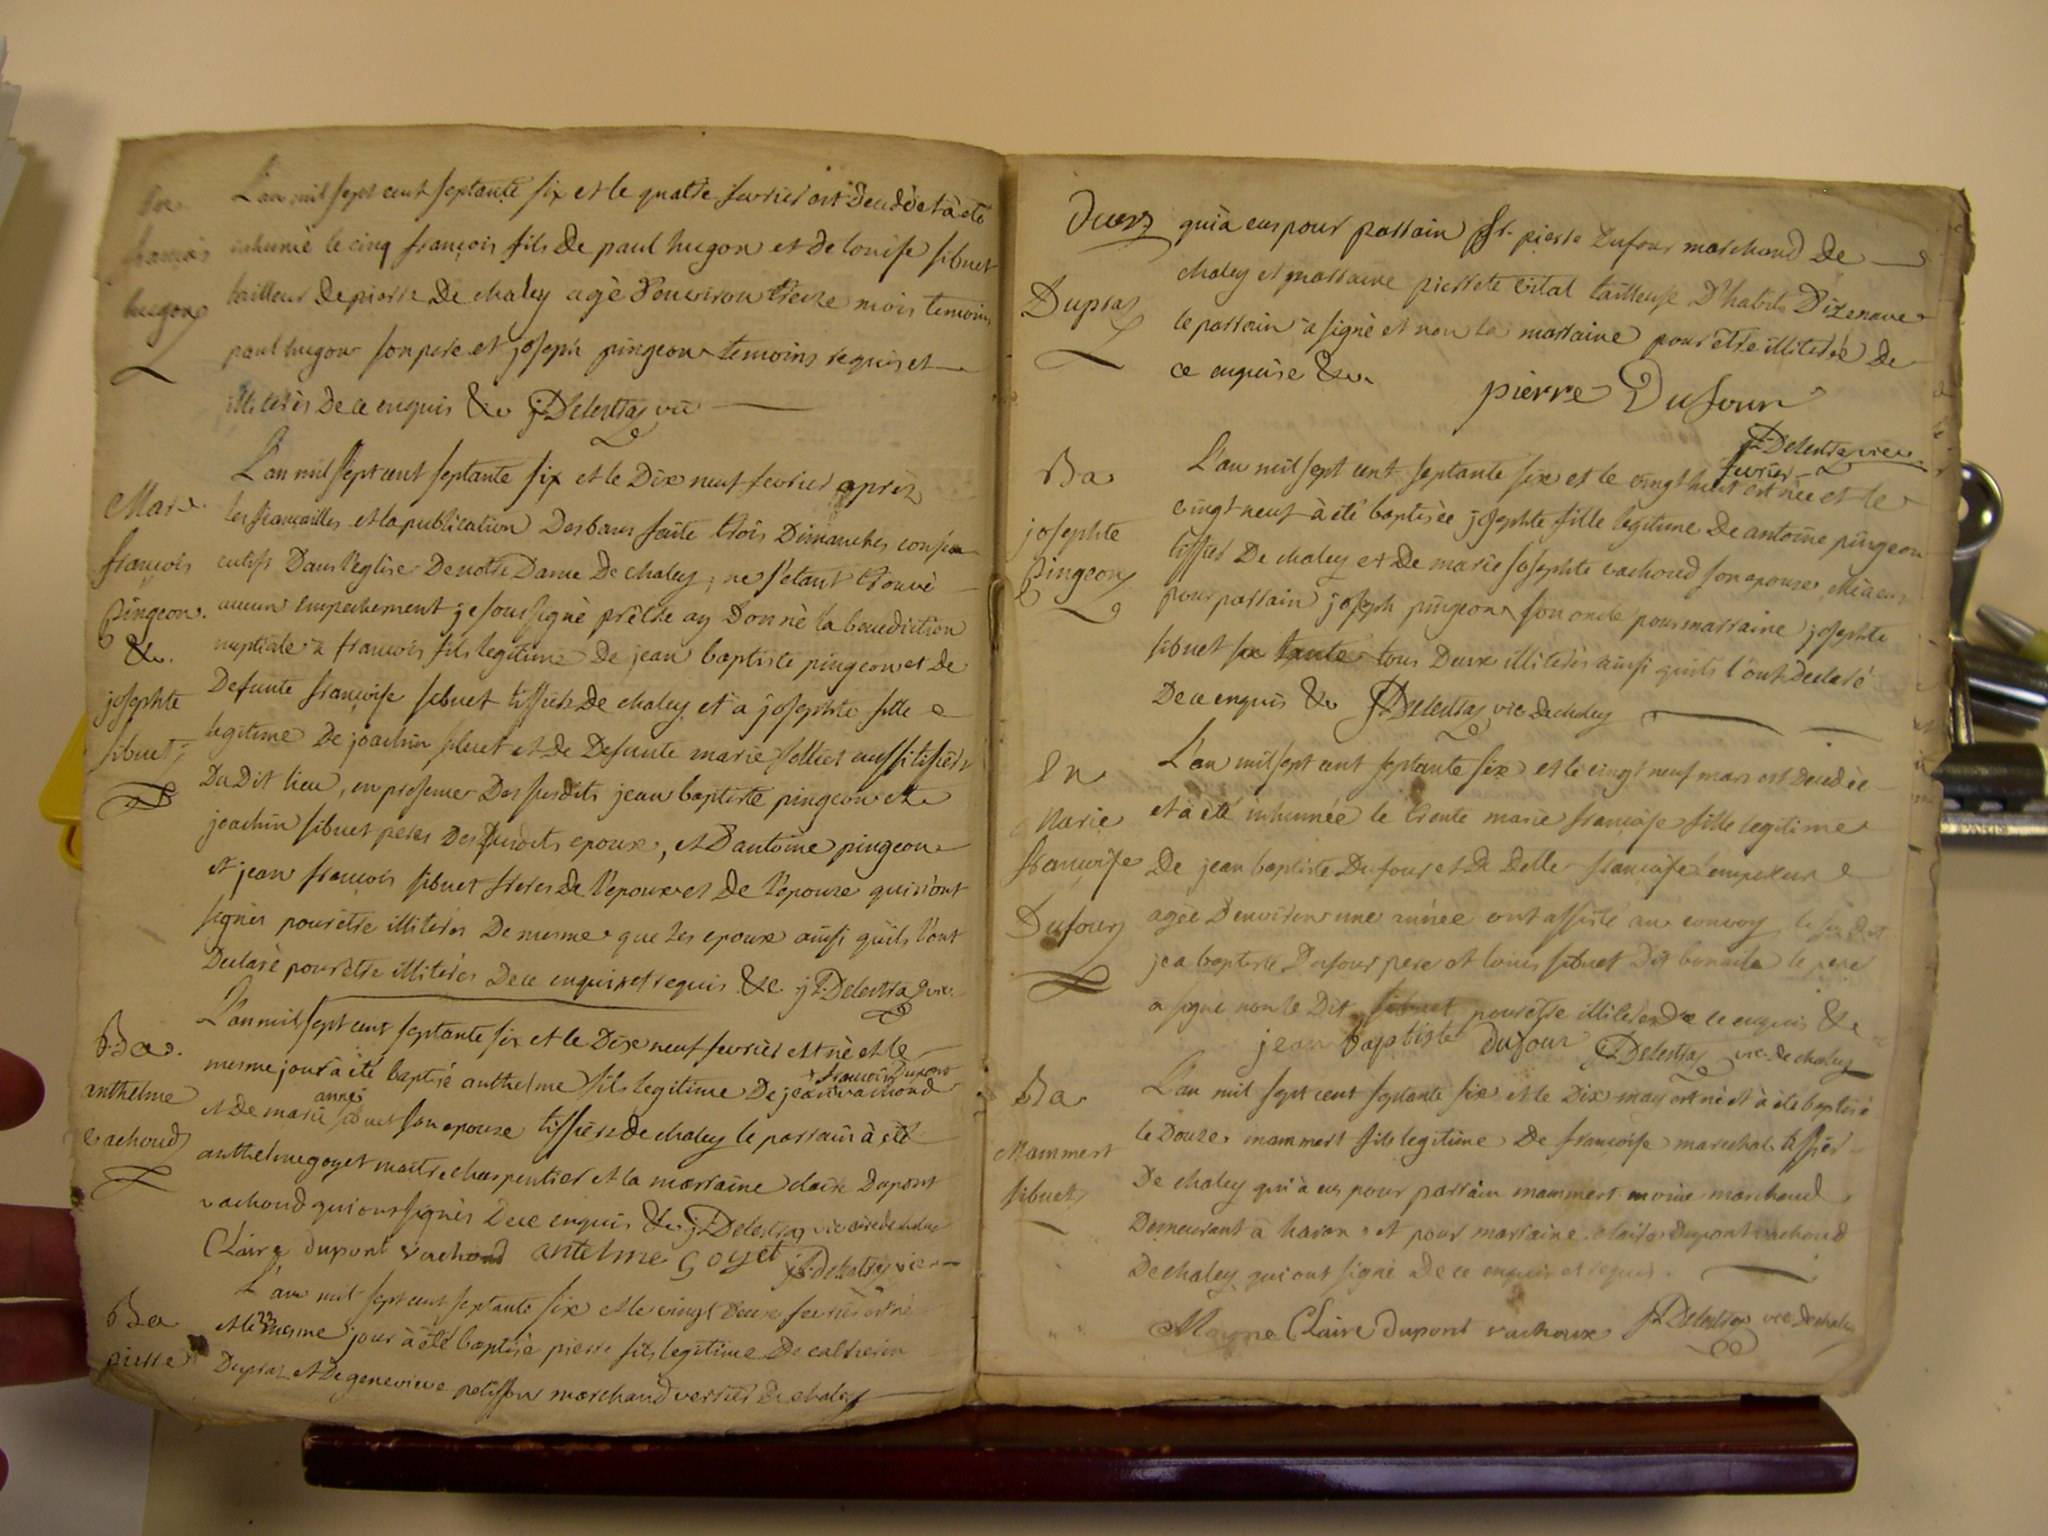 L'an mil sept cent septante six et le quatre fevrier est decedé et à eté
françois inhumé le cinq françois fils de paul hugon et de louise sibuet
hugon tailleur de pierre de chaley agé d'environ treize mois temoins
paul hugon son pere et joseph pingeon temoins requis et
illiterés de ce enquis &c j. Delestraz vic
L'an mil sept cent septante six et le dix neuf fevrier après
Mar. les fiançailles et la publication des bans faite trois dimanches conse
françois cutifs dans l'eglise de notre dame de chaley, ne s'etant trouvé
pingeon. aucun empechement je soussigné prêtre ay donné la benediction
&c. nuptiale à francois fils legitime de jean baptiste pingeon et de
josephte defunte françoise sibuet tissiers de chaley et à josephte fille
sibuet legitime de joachin sibuet et de defunte marie aussi tissiers
du dit lieu, en presence des susdits jean baptiste pingeon et
joachin sibuet peres des susdits epoux, et d'antoine pingeon
et jean francois sibuet freres de l'epoux et de l'epouse qui n'ont
signés pour être illiterés de mesme que les epoux ainsi quils l'ont
declaré pour être illiterés de ce enquis et requis &c. j. Delestraz vic.
L'an mil sept cent septante six et le dix neuf fevrier est né et le
Ba. mesme jour à eté baptisé anthelme fils legitime de jean + francois Dupont vachoud
anthelme et de marie anne sibuet son epouse tissiers de chaley le parrain à eté
vachoud anthelme goyet maitre charpentier et la marraine claire Dupont
vachoud qui ont signés de ce enquis &c j. Delestraz vicaire de chaley
Claire dupont vachoud antelme Goyet j. Delestraz vic
L'an mil sept cent septante six et le vingt deux fevrier est né
Ba et le 22 mesme jour à eté baptisé pierre fils legitime de catherin
pierre Dupraz et de genevieve marchand verrier de chaley
qui à eu pour parrain Sr. pierre Dufour marchand de
Dupraz chaley et marraine pierrete vital tailleuse d'habits d'izenave
le parrain à signé et non la marraine pour etre illiterée de
ce enquise &c.
pierre Dufour
j. Delestraz vic
Ba L'an mil sept cent septante six et le vingt huit fevrier est née et le
josephte vingt neuf à eté baptisée josephte fille legitime de antoine pingeon
pingeon tissier de chaley et de marie josephte vachoud son epouse
pour parrain joseph pingeon son oncle pour marraine josephte
sibuet sa tante tous deux illiterés ainsi quils l'ont declaré
de ce enquis &c j. Delestraz vic de chaley
En L'an mil sept cent septante six et le vingt neuf mars est decedée
Marie et à eté inhumée le trente marie françoise fille legitime
françoise de jean baptiste Dufour et de delle françoise Lempereur
Dufour agée d'environ une année ont assisté au convoy le susdit
jea baptiste Dufour pere et louis sibuet dit le pere
à signé non le dit sibuet pour être illiteré de ce enquis &c
jean baptiste dufour j. Delestraz vic. de chaley
Ba L'an mil sept cent septante six et le dix may est né et à eté baptisé
Mammert le douze mammert fils legitime de françoise marechal tissier
sibuet de chaley qui à eu pour parrain mammert moine marchand
demeurant à et pour marraine claire dupont vachoud
de chaley qui ont signé de ce enquis et requis.
Moyne Claire dupont vachoux j. Delestraz vic de chaley